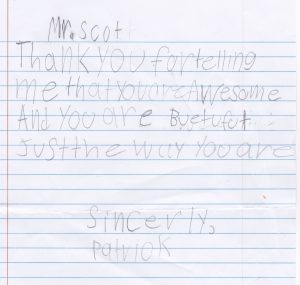 Mr. Scott
Thank you fortelling
me thatyouareAwesome
And you are Buetufut
Justthe way you are
Sincerly,
Patrick